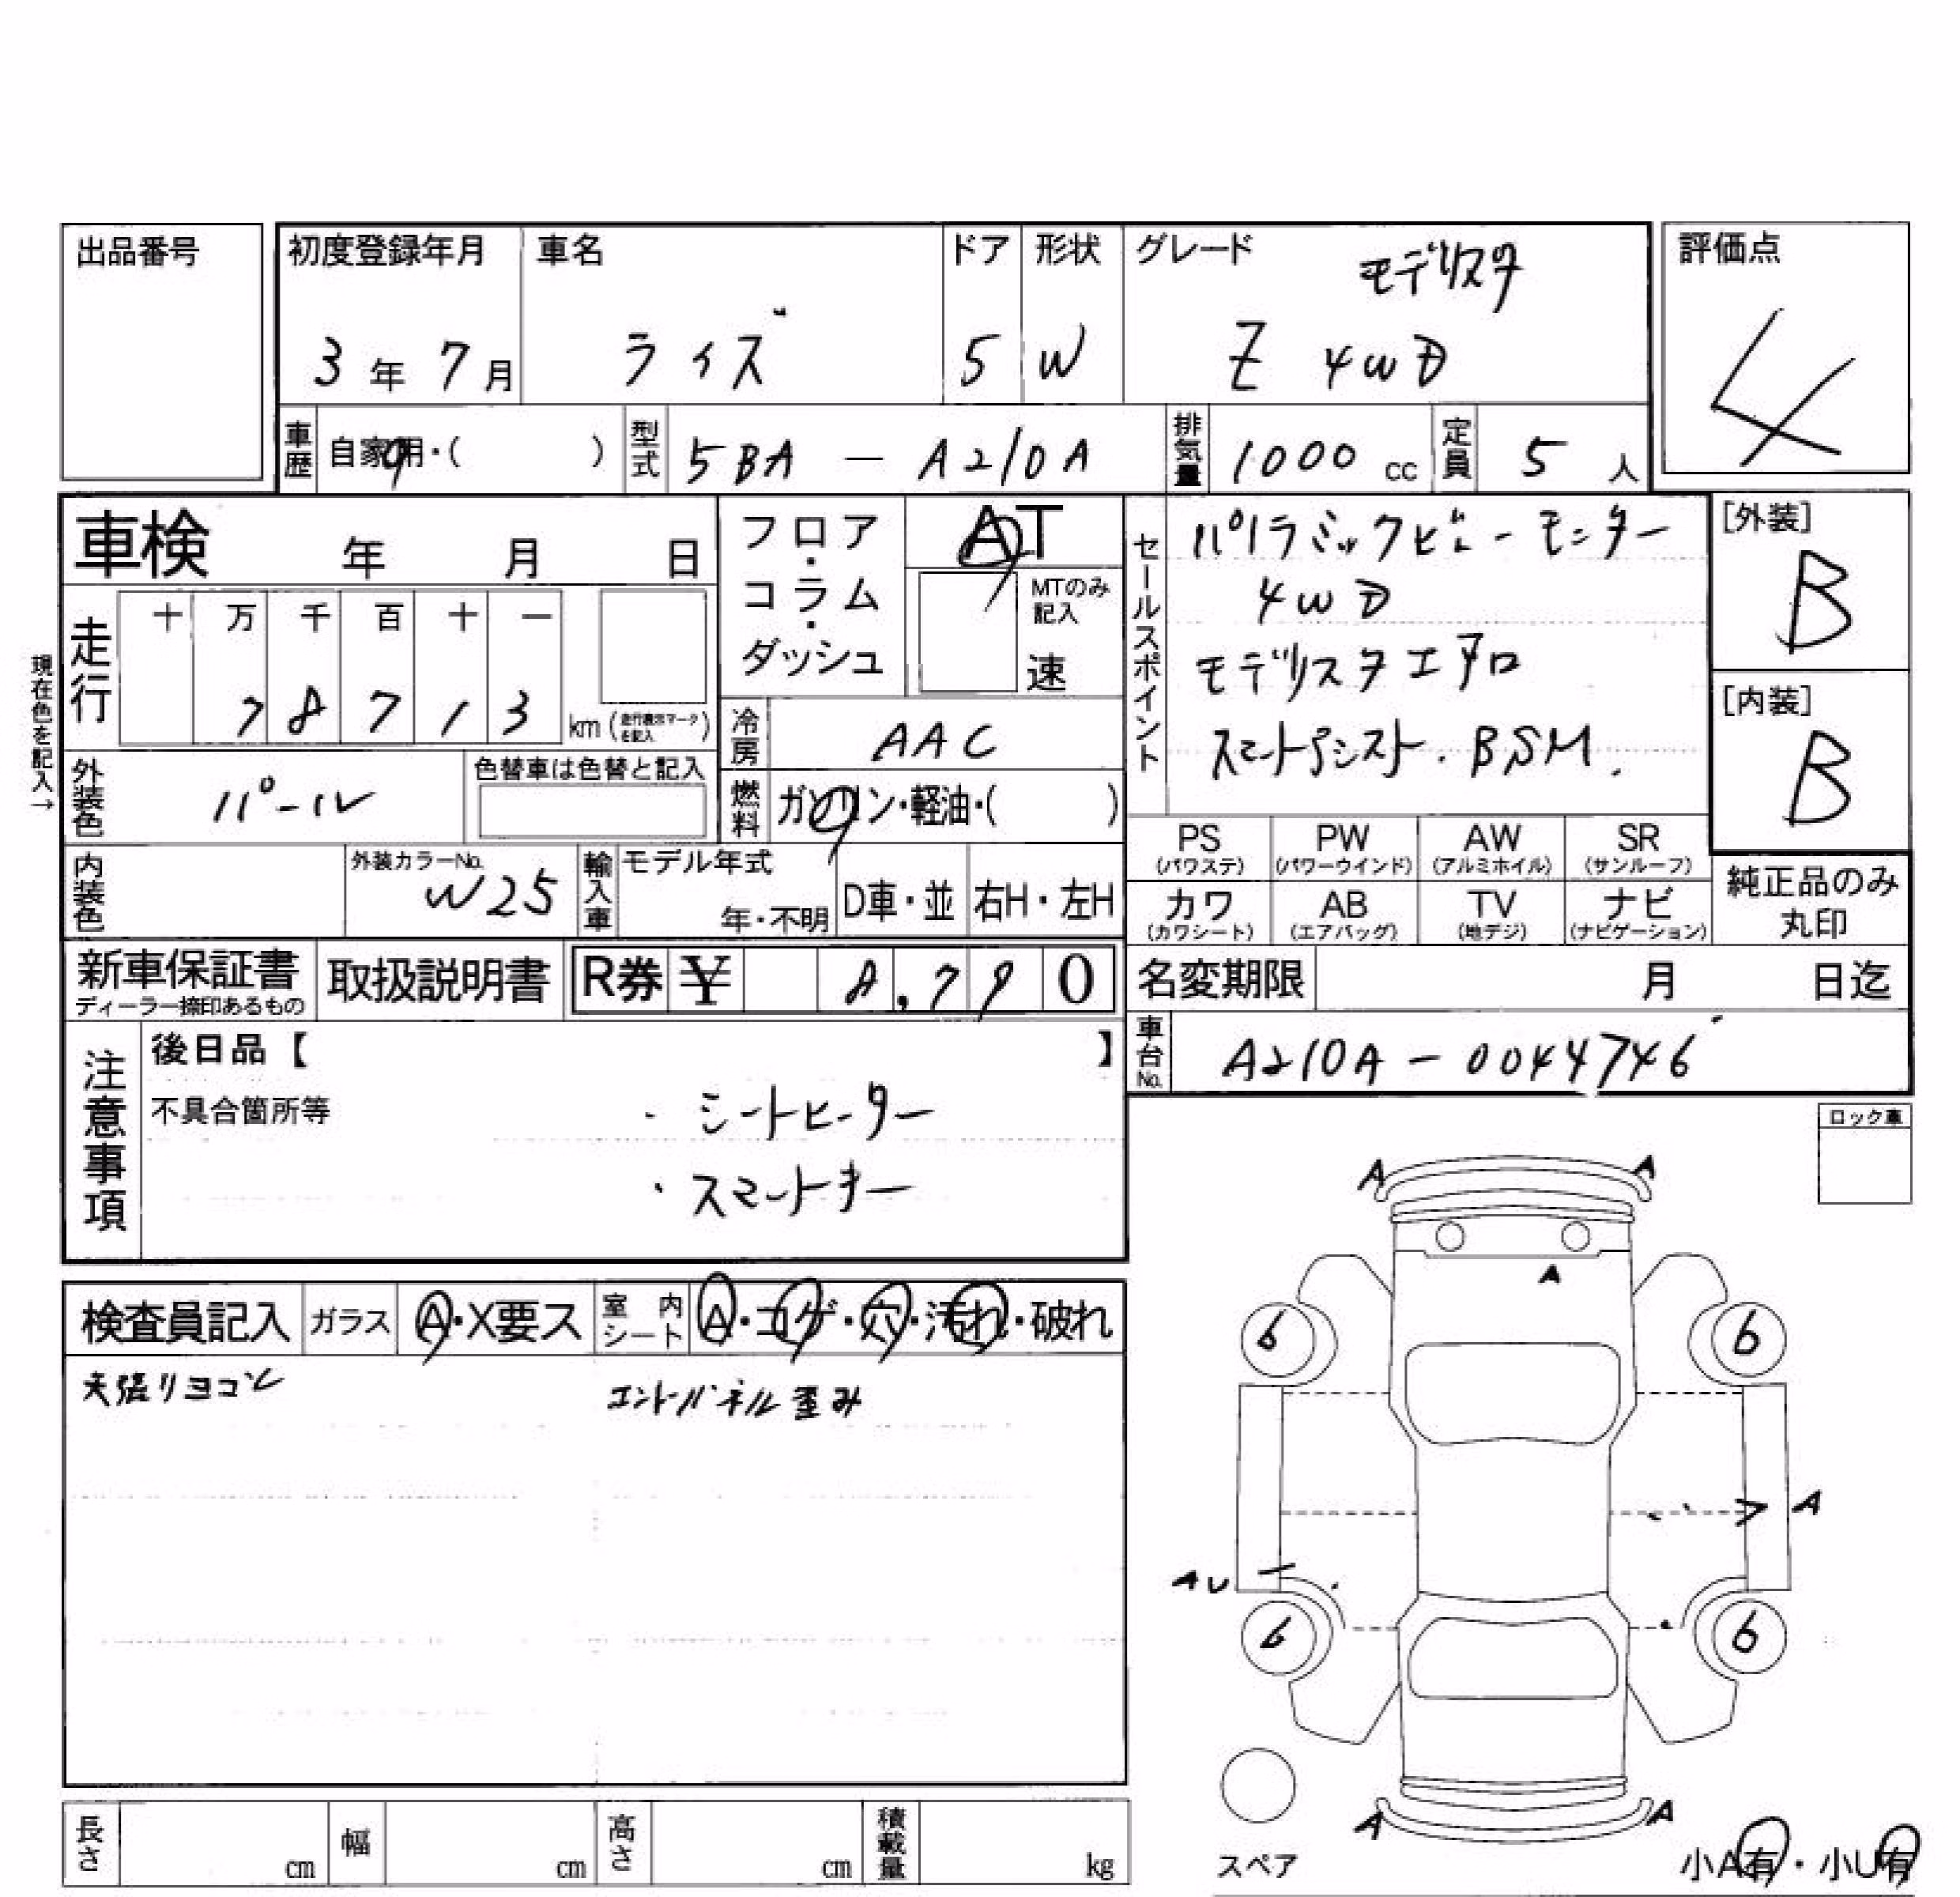 出品番号
初度登録年月 車名 ドア 形状 グレード 評価点
モデリスタ
3年 7月 ライズ 5 W Z 4WD 4
車歴 自家用・( ) 型式 5BA - A210A 排気量 1000 cc 定員 5 人
車検 年 月 日
フロア・コラム・ダッシュ
AT
MTのみ記入
速
セールスポイント
パノラミックビューモニター
4WD
モデリスタエアロ
スマートアシスト. BSM.
[外装]
B
[内装]
B
現在色を記入→
走行 十 万 千 百 十 一
7 8 7 1 3 km (走行表示マークを記入)
冷房 AAC
外装色 パール 色替車は色替と記入
燃料 ガソリン・軽油・( )
PS (パワステ) PW (パワーウインド) AW (アルミホイル) SR (サンルーフ)
カワ (カワシート) AB (エアバッグ) TV (地デジ) ナビ (ナビゲーション)
純正品のみ丸印
内装色 外装カラーNo. W25 輸入車 モデル年式 年・不明 D車・並 右H・左H
新車保証書 ディーラー捺印あるもの 取扱説明書 R券 ¥ 8,790
名変期限 月 日迄
車台No. A210A-0044746
注意事項 後日品【 】
不具合箇所等
・シートヒーター
・スマートキー
ロック車
検査員記入 ガラス A・X要ス 室内シート A・コゲ・穴・汚れ・破れ
天張リヨゴレ エントパネル歪み
A A
A
6 6
A
AU
6 6
A A
スペア
小A有・小U有
長さ cm 幅 cm 高さ cm 積載量 kg